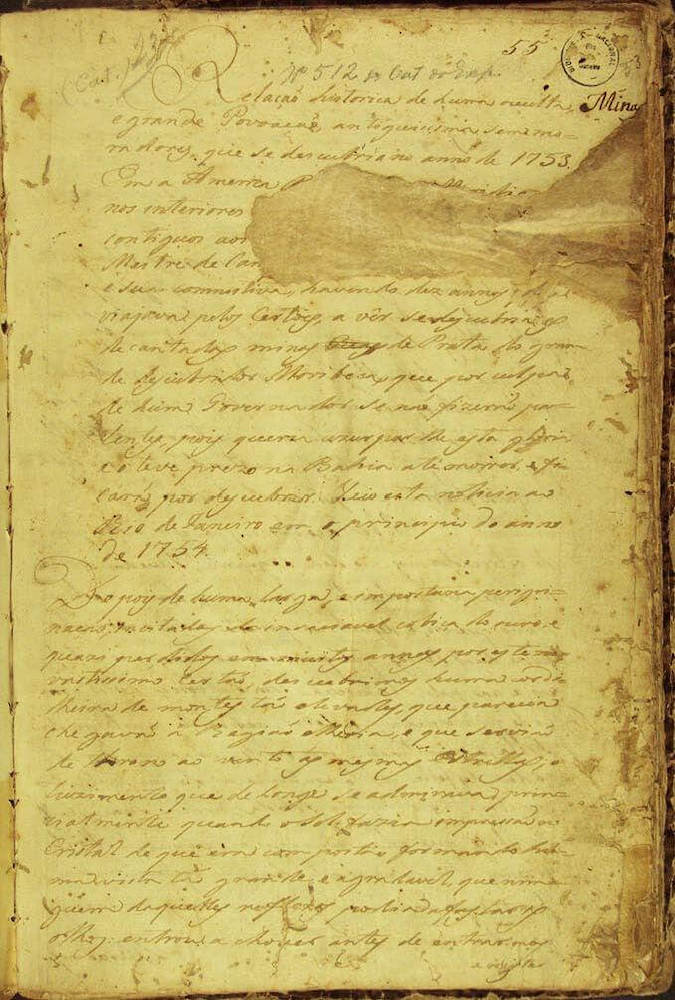 55
Nº 512 do Cat. da Exp.
Mina
Relação historica de huma occulta,
e grande Povoação, antiquissima sem mo-
radores, que se descubriu no anno de 1753.
Em a America
nos interiores
contiguos aos
Mestre de Can
e sua comnitiva, havendo dez annos, q̃
viajava pelos Certões, a vêr se descubria as
decantadas minas de Prata do gran-
de descubridor Moribeca, que por culpa
de hum Governador se não fizerão pa-
tentes, pois queria usurparlhe esta gloria
e o teve prezo na Bahia até morrer, e fi-
carão por descubrir. Veio esta noticia ao
Rio de Janeiro em o principio do anno
de 1754.
Depois de huma larga, e importuna perigri-
nação, incitados da insaciavel cobiça do ouro, e
quazi perdidos em muitos annos por este
vastissimo Certão, descubrimos huma cordi-
lheira de montes tão elevados, que parecia
chegavão à Região etherea, e que servião
de throno ao vento às mesmas Estrellas, o
luzimento que de longe se admirava prin-
cialmente quando o Sol fazia impressão ao
Cristal de que era composta formando hu-
ma vista tão grande e agradavel, que nin-
guem daquelles reflexos podia afastar os
olhos: entrou a chover antes de entrarmos